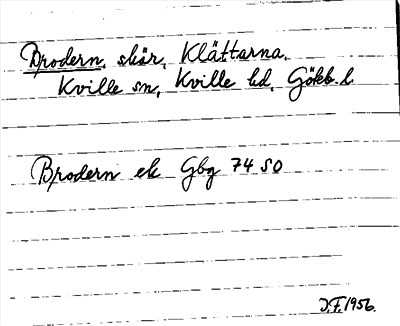 Brodern, skär, Klättarna.
Kville sn, Kville hd, Götb. l.
Brodern ek Gbg 74 SO
J.F. 1956.